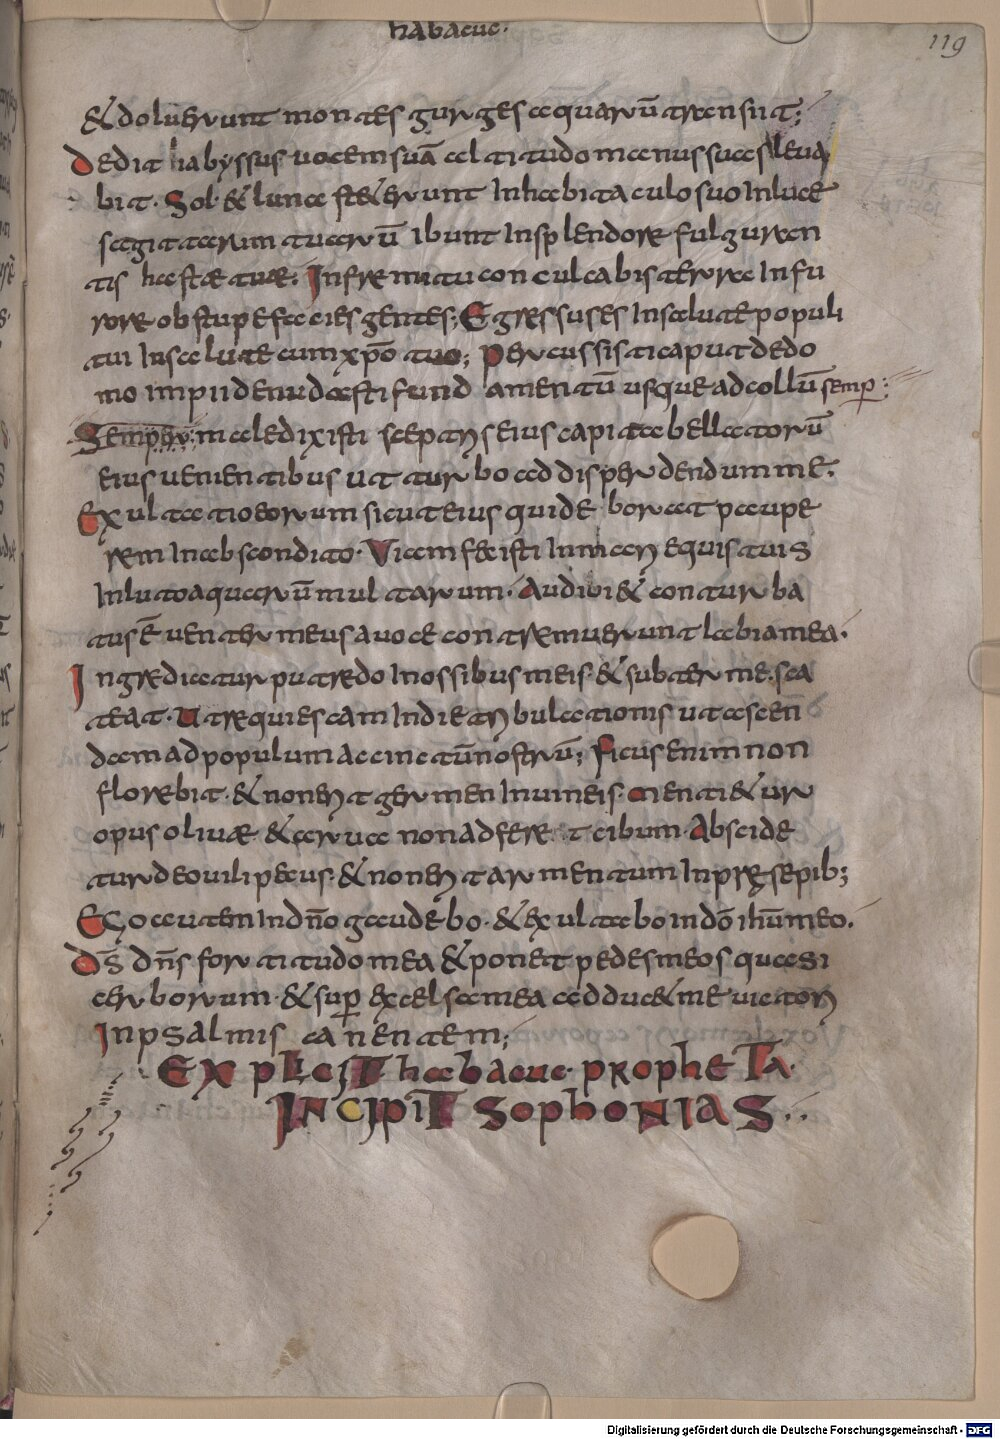 habacuc·
119
& doluerunt montes gurges aquarū transiit;
Dedit habyssus uocem suā altitudo manus suas leua
bit· Sol· & luna st&erunt In habitaculo suo In luce
sagittarum tuarū ibunt In splendore fulguran
tis hastæ tuæ· In fremitu conculcabis terra In fu
rore obstupefacies gentes; Egressus es In salute populi
tui In salute cum xp̄o tuo; percussisti caput de do
mo impii denudasti fund amentū usque ad collū semp̄:
Semper; maledixisti sceptris eius capita bellatorū
eius uenientibus ut turbo ad disperdendum me·
Exultatio eorum sicut eius qui de uorat paupe
rem In abscondito· Viam fecisti In mari equis tuis
In luto aquarū multarum· Audiui & conturba
tus ē uenter meus a uoce contremuerunt labia mea·
Ingrediatur putredo In ossibus meis· & subter me· sca
teat· Ut requiescam In die tribulationis ut ascen
dam ad populum accinctū nostrū; Ficus enim non
florebit· & non erit germen In uineis· Menti&ur
opus oliuæ· & arua non adfere t cibum· Abscide
tur de ouili pecus· & non erit armentum In pręsepib;
Ego autem In dn̄o gaudebo· & exultabo in dō ihū meo·
Ds̄ dn̄s fortitudo mea & ponet pedes meos quasi
ceruorum· & sup̄ excelsa mea adduc& me uictori
In psalmis canentem;
EXPLICIT habacuc· PROPHETA·
INCIPIT SOPHONIAS··
Digitalisierung gefördert durch die Deutsche Forschungsgemeinschaft - DFG